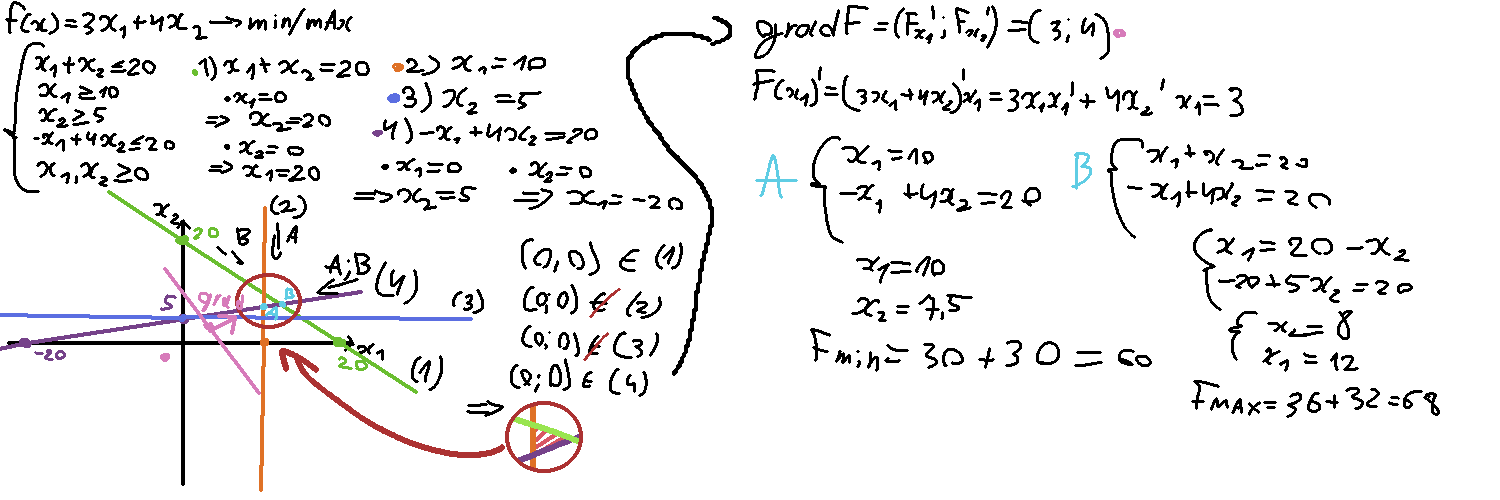 f(x)=3x₁+4x₂→min/mAx
x₁+x₂≤20
x₁≥10
x₂≥5
-x₁+4x₂≤20
x₁,x₂≥0
.1)x₁+x₂=20
•x₁=0
⇒ x₂=20
•x₂=0
⇒x₁=20
•2) x₁=10
•3) x₂=5
•4) -x₁+4x₂=20
•x₁=0
⇒x₂=5
•x₂=0
⇒ x₁=-20
x₂
20
B
(2)
A
A;B
(4)
5
grad
A
B
(3)
-20
x₁
20
(1)
(0,0) ∈ (1)
(0,0) ∉ (2)
(0;0) ∉ (3)
(0;0) ∈ (4)
⇒
grad F=(Fx₁';Fx₂')=(3;4)
F(x₁)'=(3x₁+4x₂)'x₁=3x₁x₁'+4x₂' x₁=3
A
x₁=10
-x₁+4x₂=20
x₁=10
x₂=7,5
Fmin=30+30=60
B
x₁+x₂=20
-x₁+4x₂=20
x₁=20-x₂
-20+5x₂=20
x₂=8
x₁=12
FMAX=36+32=68